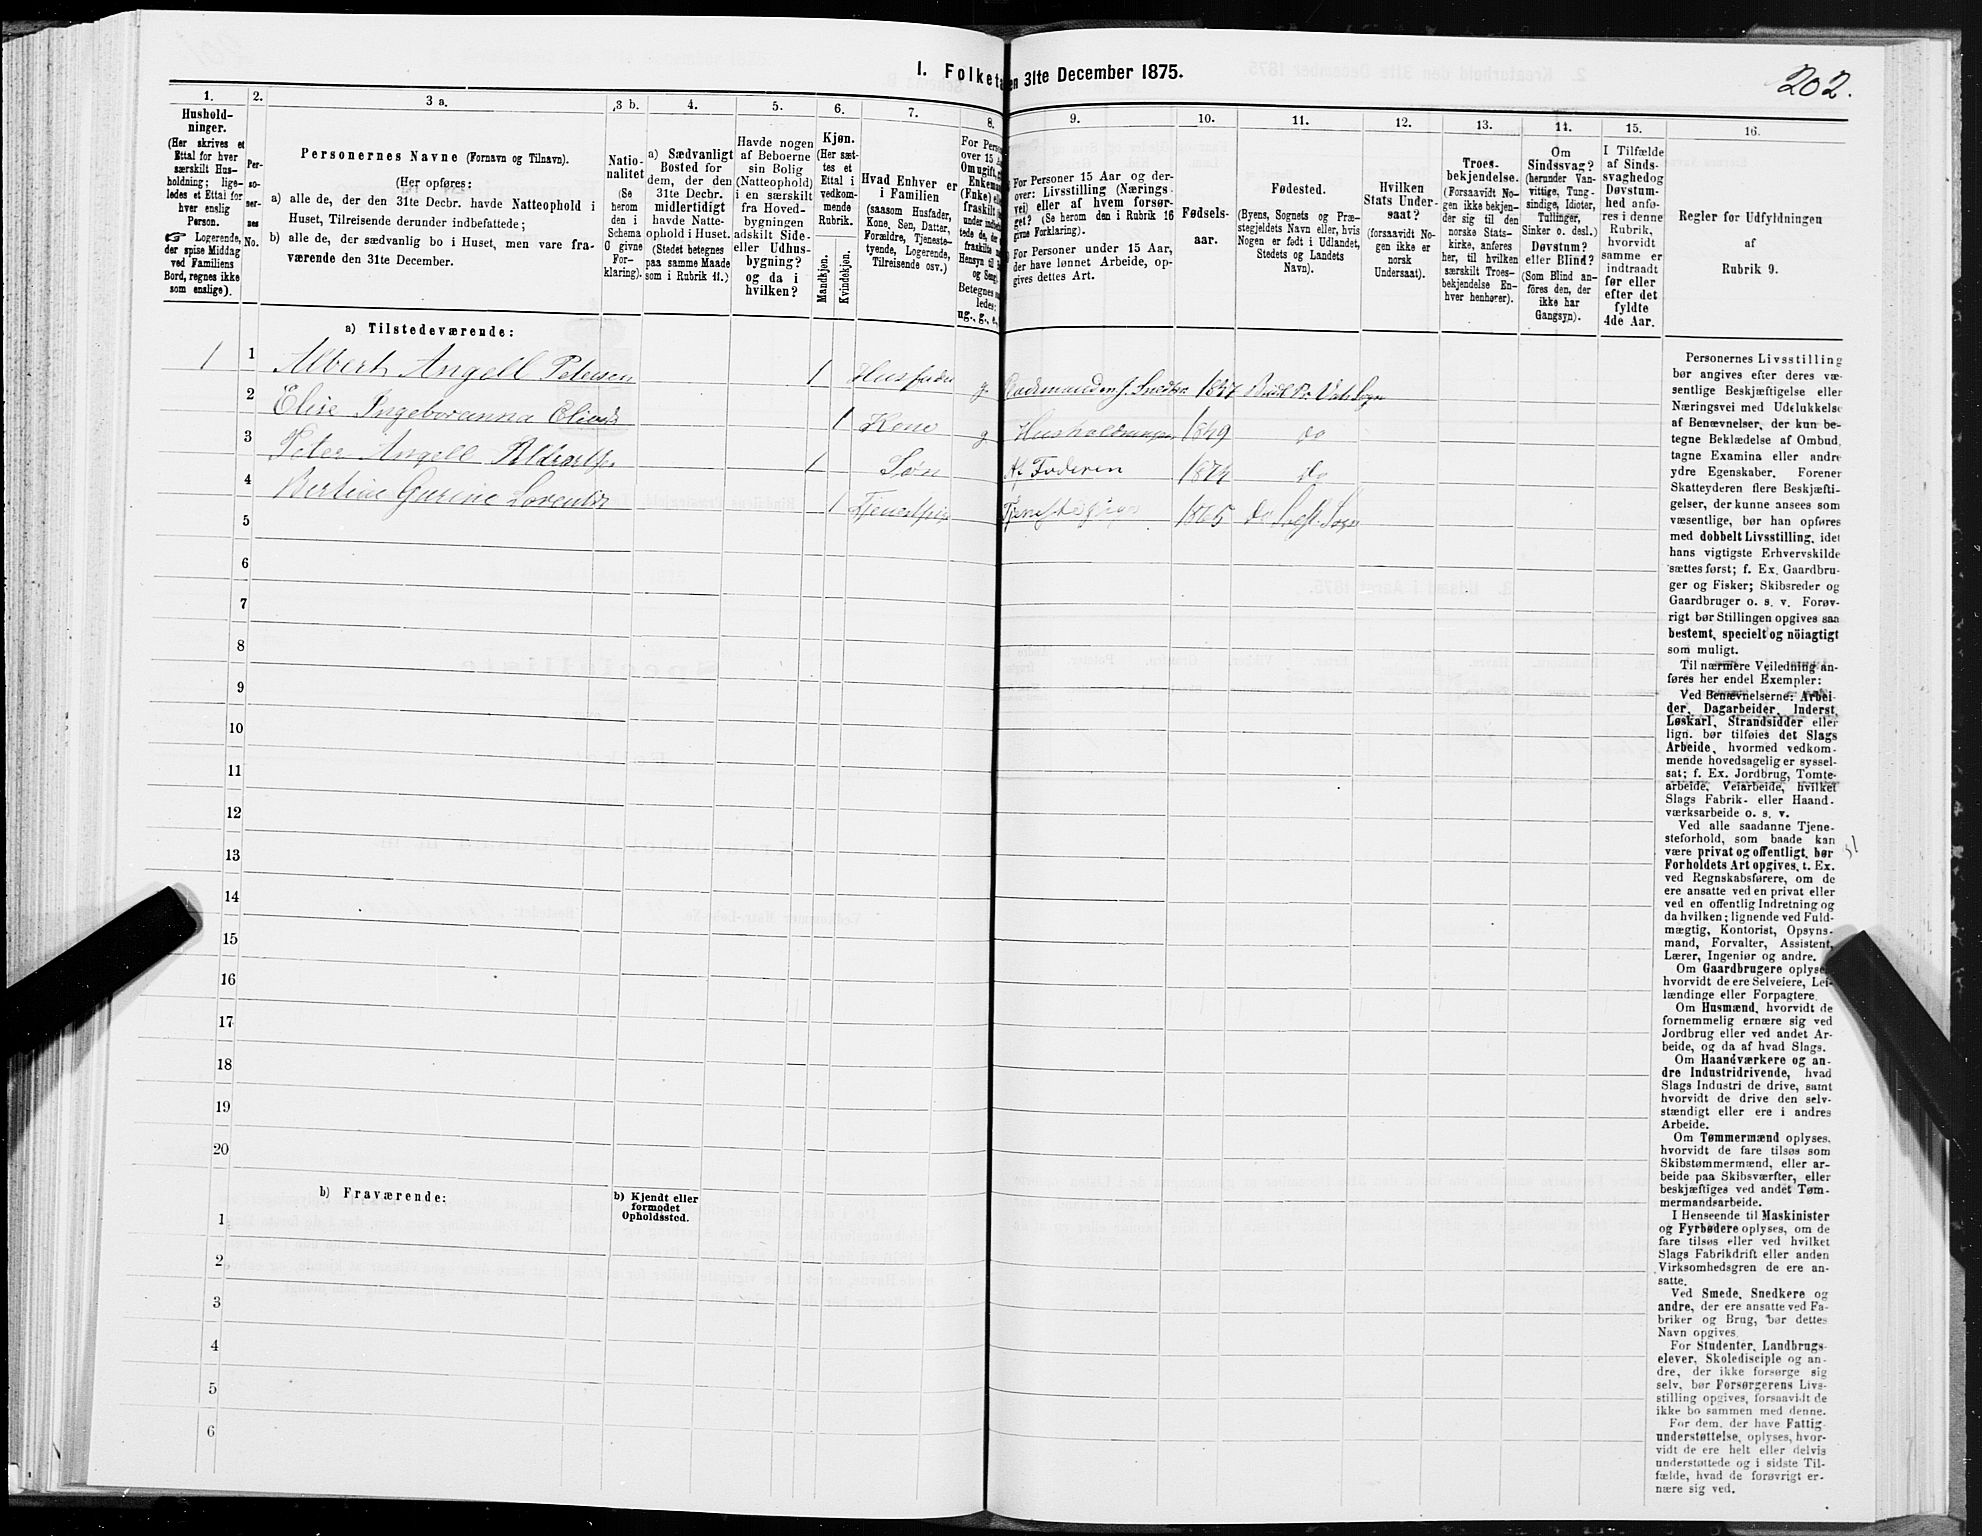 I. Folketa en 31te December 1875.
202.
1.
Hushold-
ninger.
(Her skrives et
Ettal for hver
særskilt Hus-
holdning; lige-
ledes et Ettal for
hver enslig
Person.
☞ Logerende,
der spise Middag
ved Familiens
Bord, regnes ikke
som enslige).
2.
Per-
so-
ner-
nes
No.
3 a.
Personernes Navne (Fornavn og Tilnavn).
(Her opføres:
a) alle de, der den 31te Decbr. havde Natteophold i
Huset, Tilreisende derunder indbefattede;
b) alle de, der sædvanlig bo i Huset, men vare fra-
værende den 31te December.
3 b.
Natio-
nalitet
(Se
herom
den i
Schema
C givne
For-
klaring).
4.
a) Sædvanligt
Bosted for
dem, der den
31te Decbr.
midlertidigt
havde Natte-
ophold i Huset.
(Stedet betegnes
paa samme Maade
som i Rubrik 11.)
5.
Havde nogen
af Beboerne
sin Bolig
(Natteophold)
i en særskilt
fra Hoved-
bygningen
adskilt Side-
eller Udhus-
bygning?
og da i
hvilken?
6.
Kjøn.
(Her sæt-
tes et
Ettal i
vedkom-
mende
Rubrik.
Mandkjøn.
Kvindekjøn.
7.
Hvad Enhver er
i Familien
(saasom Husfader,
Kone, Søn, Datter,
Forældre, Tjeneste-
tyende, Logerende,
Tilreisende osv.)
8.
For Perso
over 15 A
Om ugift,
Enkema
(Enke) el
fraskilt
under indbe
tede de, de
fraskilte
Hensyn til
og Seng
Betegnes
ledes:
ug., g., e.,
9.
For Personer 15 Aar og der-
over: Livsstilling (Nærings-
vei) eller af hvem forsør-
get? (Se herom den i Rubrik 16
givne Forklaring).
For Personer under 15 Aar,
der have lønnet Arbeide, op-
gives dettes Art.
10.
Fødsels-
aar.
11.
Fødested.
(Byens, Sognets og Præ-
stegjeldets Navn eller, hvis
Nogen er født i Udlandet,
Stedets og Landets
Navn).
12.
Hvilken
Stats Under-
saat?
(forsaavidt No-
gen ikke er
norsk
Undersaat).
13.
Troes-
bekjendelse.
(Forsaavidt No-
gen ikke bekjen-
der sig til den
norske Stats-
kirke, anføres
her, til hvilken
særskilt Troes-
bekjendelse En-
hver henhører).
14.
Om
Sindssvag?
(herunder Van-
vittige, Tung-
sindige, Idioter,
Tullinger,
Sinker o. desl.)
Døvstum?
eller Blind?
(Som Blind an-
føres den, der
ikke har
Gangsyn).
15.
I Tilfælde
af Sinds-
svaghed og
Døvstum-
hed anfø-
res i denne
Rubrik,
hvorvidt
samme er
indtraadt
før eller
efter det
fyldte
4de Aar.
16.
Regler for Udfyldningen
af
Rubrik 9.
a) Tilstedeværende:
1 1 Albert Angell Petersen 1 Husfader g 1847
2 Elise Ingeboranna 1 Kone g 1849 do
3 Peter Angell 1 Søn Af Faderen 187 do
4 Bertine Gurine 1 1865 do Sogn
5
6
7
8
9
10
11
12
13
14
15
16
17
18
19
20
b) Fraværende:
b) Kjendt eller
formodet
Opholdssted.
1
2
3
4
5
6
Personernes Livsstilling
bør angives efter deres væ-
sentlige Beskjæftigelse eller
Næringsvei med Udelukkelse
af Benævnelser, der kun be-
tegne Beklædelse af Ombud,
tagne Examina eller andre
ydre Egenskaber. Forener
Skatteyderen flere Beskjæfti-
gelser, der kunne ansees som
væsentlige, bør han opføres
med dobbelt Livsstilling, idet
hans vigtigste Erhvervskilde
sættes først; f. Ex. Gaardbru-
ger og Fisker; Skibsreder og
Gaardbruger o. s. v. Forøv-
rigt bør Stillingen opgives saa
bestemt, specielt og nöiagtigt
som muligt.
Til nærmere Veiledning an-
føres her endel Exempler:
Ved Benævnelserne: Arbei-
der, Dagarbeider, Inderst,
Løskarl, Strandsidder eller
lign. bør tilføies det Slags
Arbeide, hvormed vedkom-
mende hovedsagelig er syssel-
sat; f. Ex. Jordbrug, Tomte-
arbeide, Veiarbeide, hvilket
Slags Fabrik- eller Haand-
værksarbeide o. s. v.
Ved alle saadanne Tjene-
steforhold, som baade kan
være privat og offentligt, bør
Forholdets Art opgives, t. Ex.
ved Regnskabsførere, om de
ere ansatte ved en privat eller
ved en offentlig Indretning og
da hvilken; lignende ved Fuld-
mægtig, Kontorist, Opsyns-
mand, Forvalter, Assistent,
Lærer, Ingeniør og andre.
Om Gaardbrugere oplyses,
hvorvidt de ere Selveiere, Lei-
lændinge eller Forpagtere.
Om Husmænd, hvorvidt de
fornemmelig ernære sig ved
Jordbrug eller ved andet Ar-
beide, og da af hvad Slags.
Om Haandværkere og an-
dre Industridrivende, hvad
Slags Industri de drive, samt
hvorvidt de drive den selv-
stændigt eller ere i andres
Arbeide.
Om Tømmermænd oplyses,
hvorvidt de fare tilsøs som
Skibstømmermænd, eller ar-
beide paa Skibsværfter, eller
beskjæftiges ved andet Tøm-
mermandsarbeide.
I Henseende til Maskinister
og Fyrbødere oplyses, om de
fare tilsøs eller ved hvilket
Slags Fabrikdrift eller anden
Virksomhedsgren de ere an-
satte.
Ved Smede, Snedkere og
andre, der ere ansatte ved Fa-
briker og Brug, bør dettes
Navn opgives.
For Studenter, Landbrugs-
elever, Skoledisciple og an-
dre, der ikke forsørge sig
selv, bør Forsørgerens Livs-
stilling opgives, forsaavidt de
ikke bo sammen med denne.
For dem, der have Fattig-
understøttelse, oplyses, hvor-
vidt de ere helt eller delvis
understøttede og i sidste Til-
fælde, hvad de forøvrigt er-
nære sig ved.